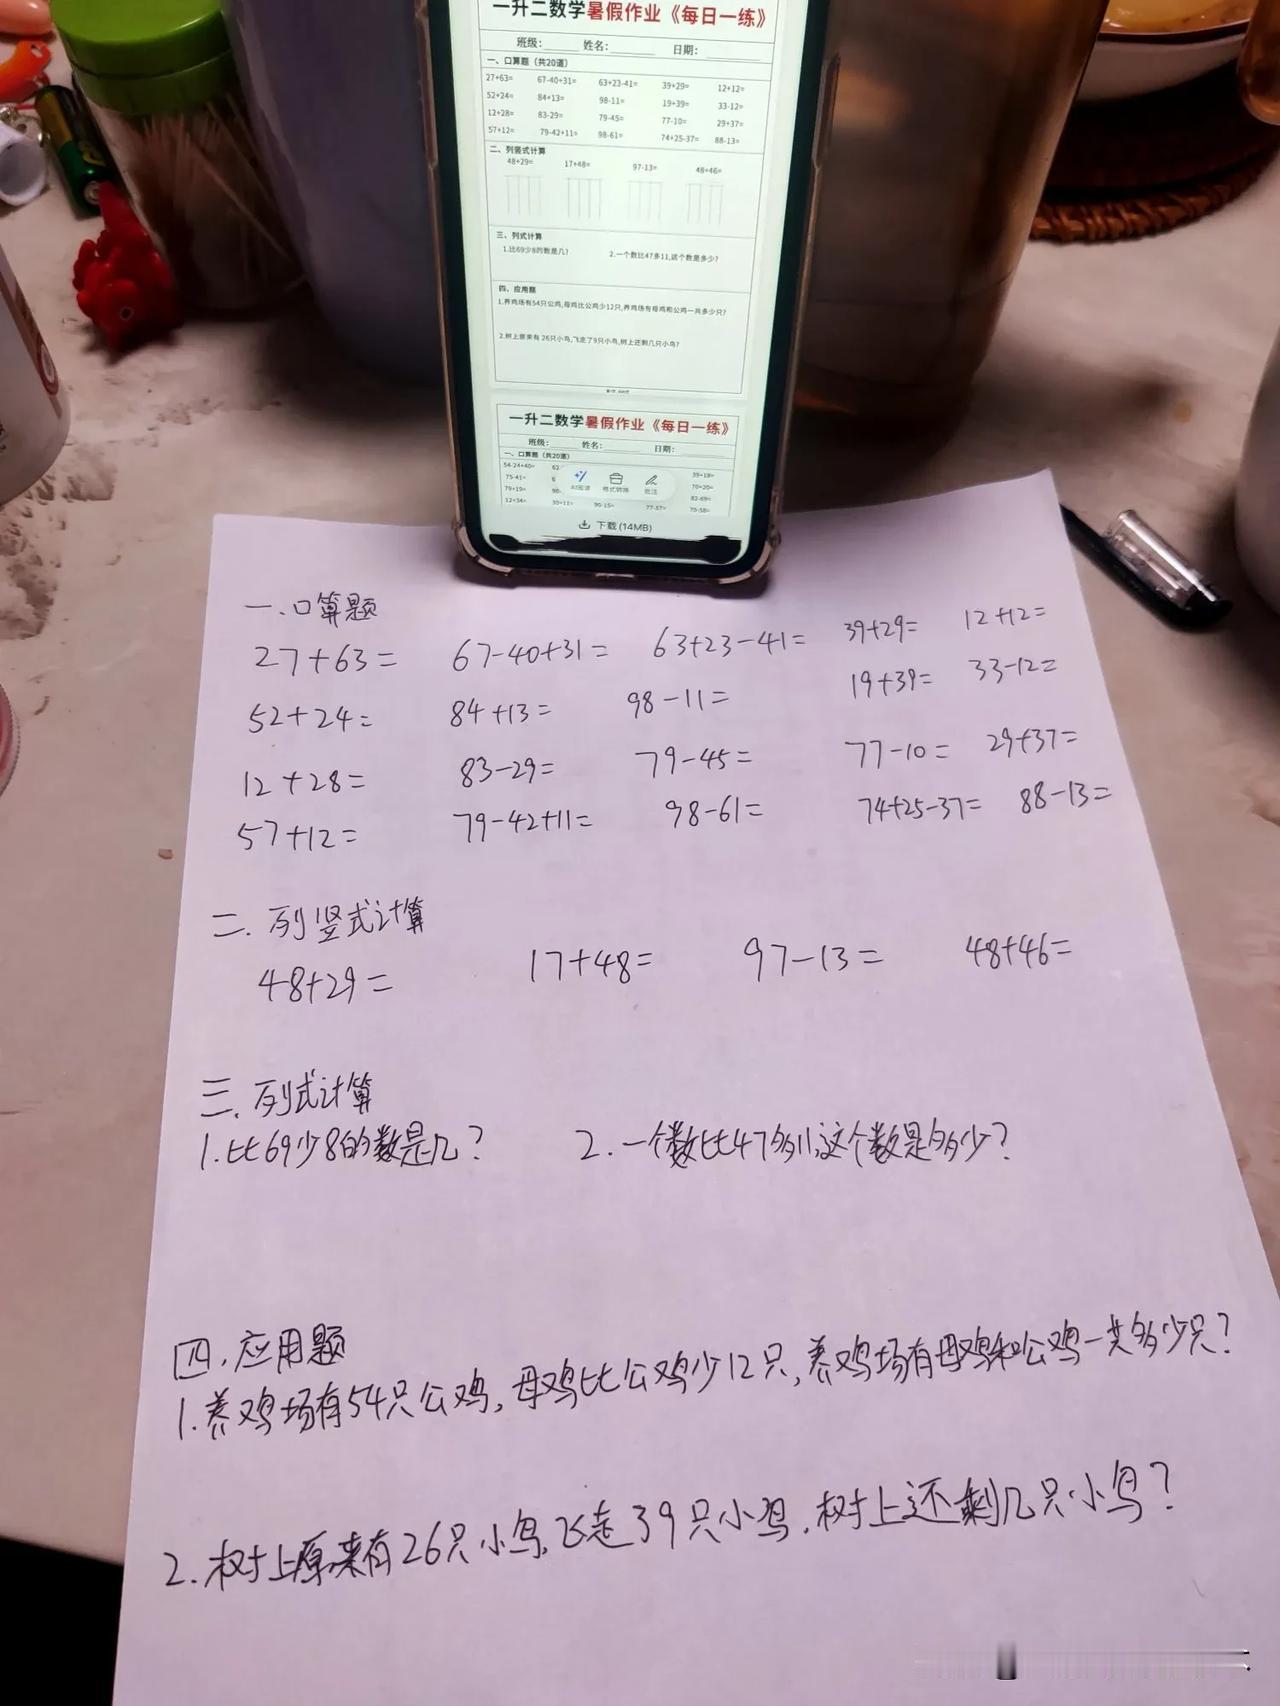 一升二数学暑假作业《每日一练》
班级：______ 姓名：______ 日期：______
一、口算题（共20道）
27+63= 67-40+31= 63+23-41= 39+29= 12+12=
52+24= 84+13= 98-11= 19+39= 33-12=
12+28= 83-29= 79-45= 77-10= 29+37=
57+12= 79-42+11= 98-61= 74+25-37= 88-13=
二、列竖式计算
48+29= 17+48= 97-13= 48+46=
三、列式计算
1.比69少8的数是几? 2.一个数比47多11,这个数是多少?
四、应用题
1.养鸡场有54只公鸡,母鸡比公鸡少12只,养鸡场有母鸡和公鸡一共多少只?
2.树上原来有 26只小鸟,飞走了9只小鸟,树上还剩几只小鸟?
一升二数学暑假作业《每日一练》
班级：______ 姓名：______ 日期：______
一、口算题（共20道）
54-24+40= 62 39+18=
75-41= 6 70+20=
79+19= 90- 82-69=
AI阅读 格式转换 批注
下载 (14MB)
一.口算题
27+63= 67-40+31= 63+23-41= 39+29= 12+12=
52+24= 84+13= 98-11= 19+39= 33-12=
12+28= 83-29= 79-45= 77-10= 29+37=
57+12= 79-42+11= 98-61= 74+25-37= 88-13=
二.列竖式计算
48+29= 17+48= 97-13= 48+46=
三.列式计算
1.比69少8的数是几? 2.一个数比47多11,这个数是多少?
四.应用题
1.养鸡场有54只公鸡,母鸡比公鸡少12只,养鸡场有母鸡和公鸡一共多少只?
2.树上原来有26只小鸟,飞走39只小鸟,树上还剩几只小鸟?